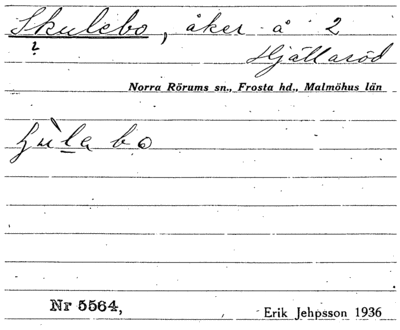 Skulebo, åker å 2
?
Hjällasöd
Norra Rörums sn., Frosta hd., Malmöhus län
Nr 5564,
Erik Jehpsson 1936